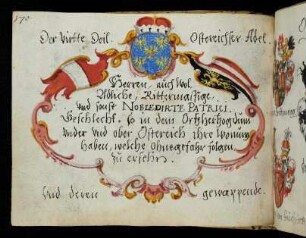 170
Der Virtte Deil. Ostereichster Adel
Herren, auch Wol
Adliche, Rittermassige,
Vnd sonst NOBILIDIRTE PATRICI.
Geschlecht, so in dem Ortzhertzogtum
Vnder vnd ober Ostereich ihre Wonung
haben, welche Ohngefahr folgen
zu ersehen.
Vnd deren gewappende.